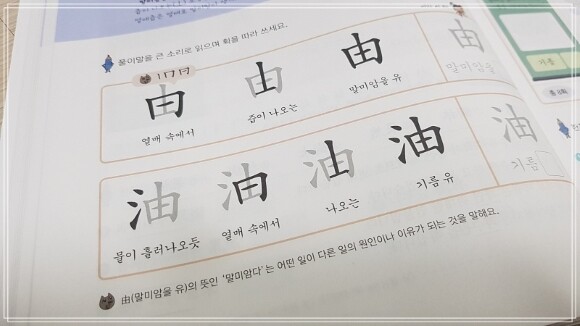 풀이말을 큰 소리로 읽으며 획을 따라 쓰세요.
由 由 由 由
열매 속에서 즙이 나오는 말미암을 유 말미암을
油 油 油 油 油
물이 흘러나오듯 열매 속에서 나오는 기름 유 기름
由(말미암을 유)의 뜻인 '말미암다'는 어떤 일이 다른 일의 원인이나 이유가 되는 것을 말해요.